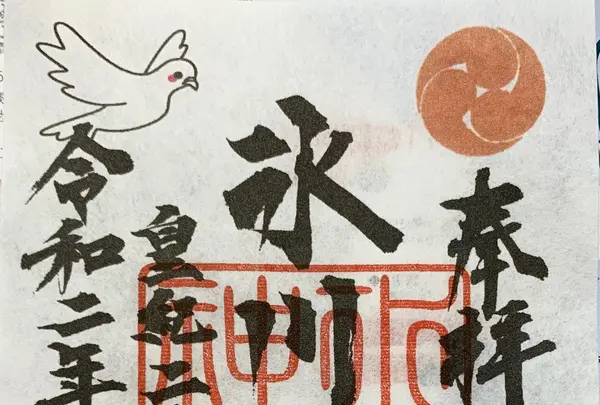 奉拝
氷川
皇紀二
令和二年